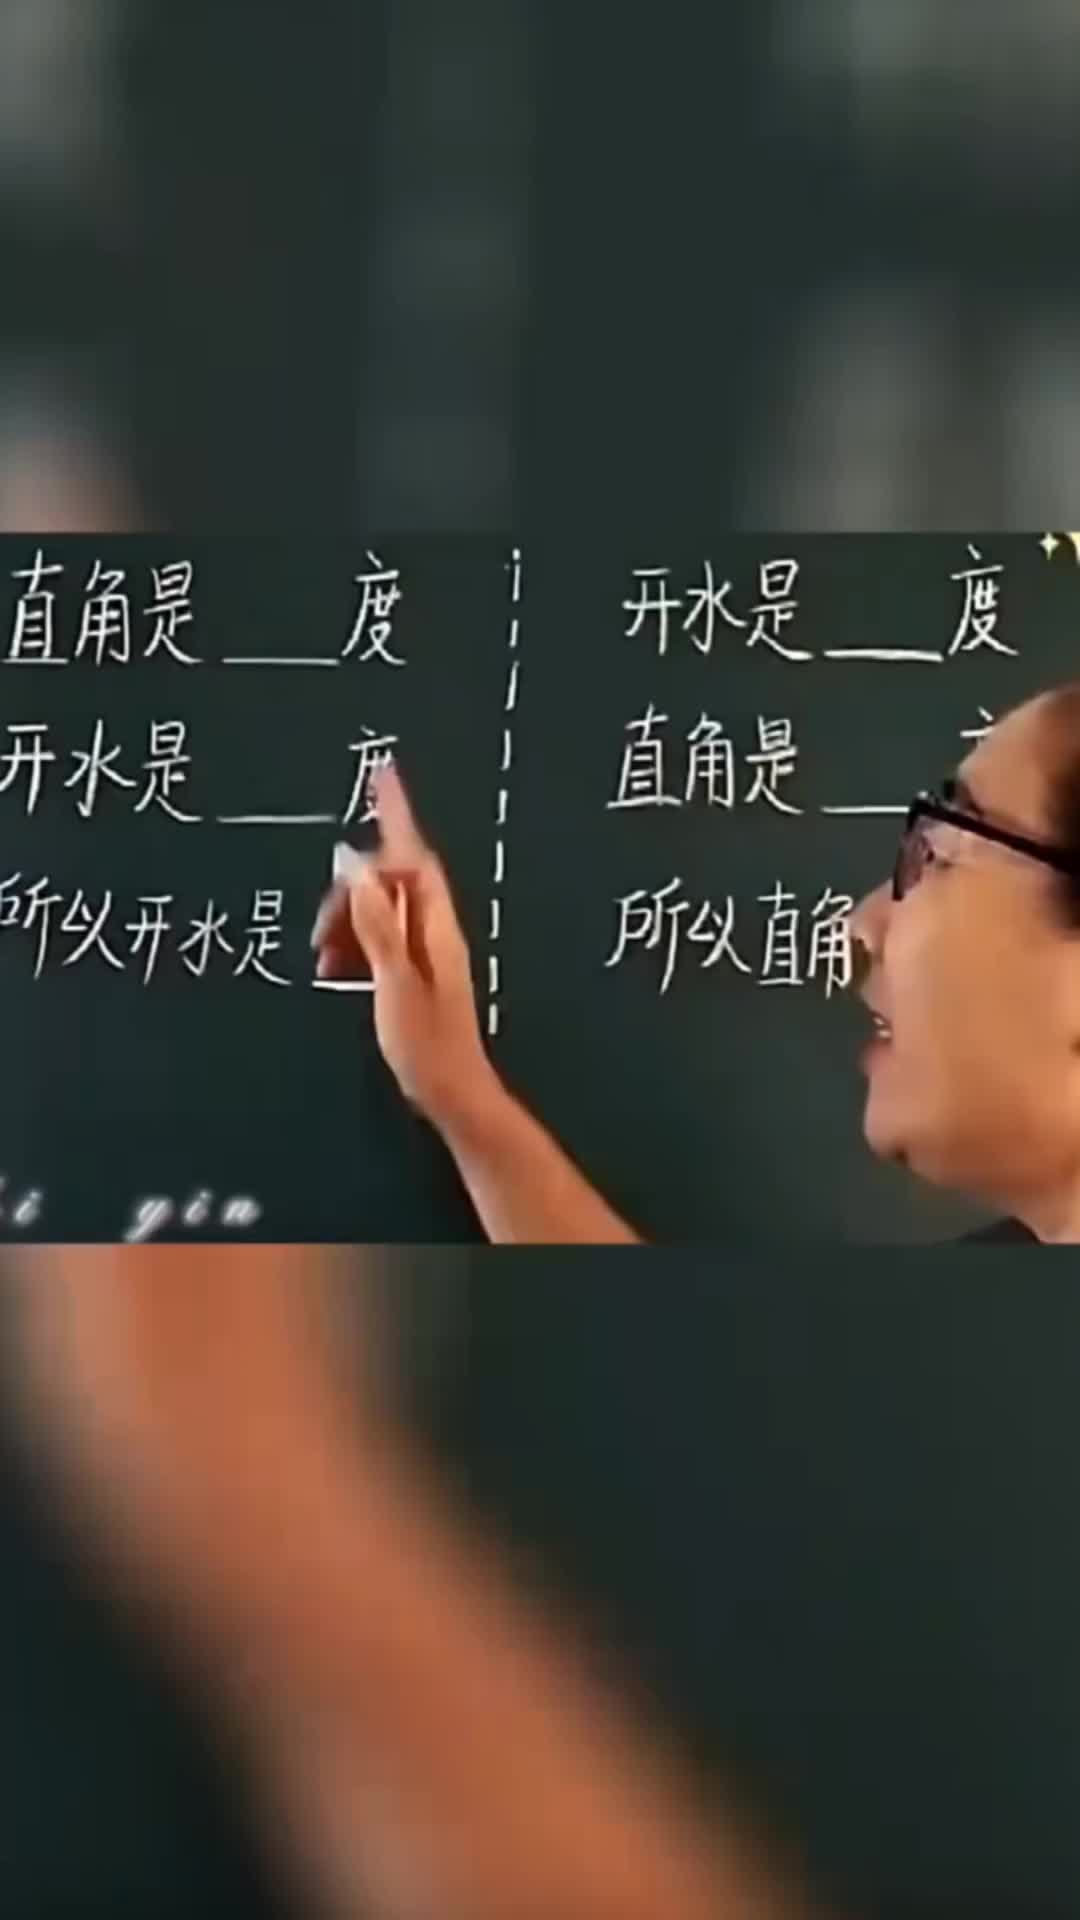 直角是___度
开水是___度
所以开水是___
开水是___度
直角是___
所以直角
yin